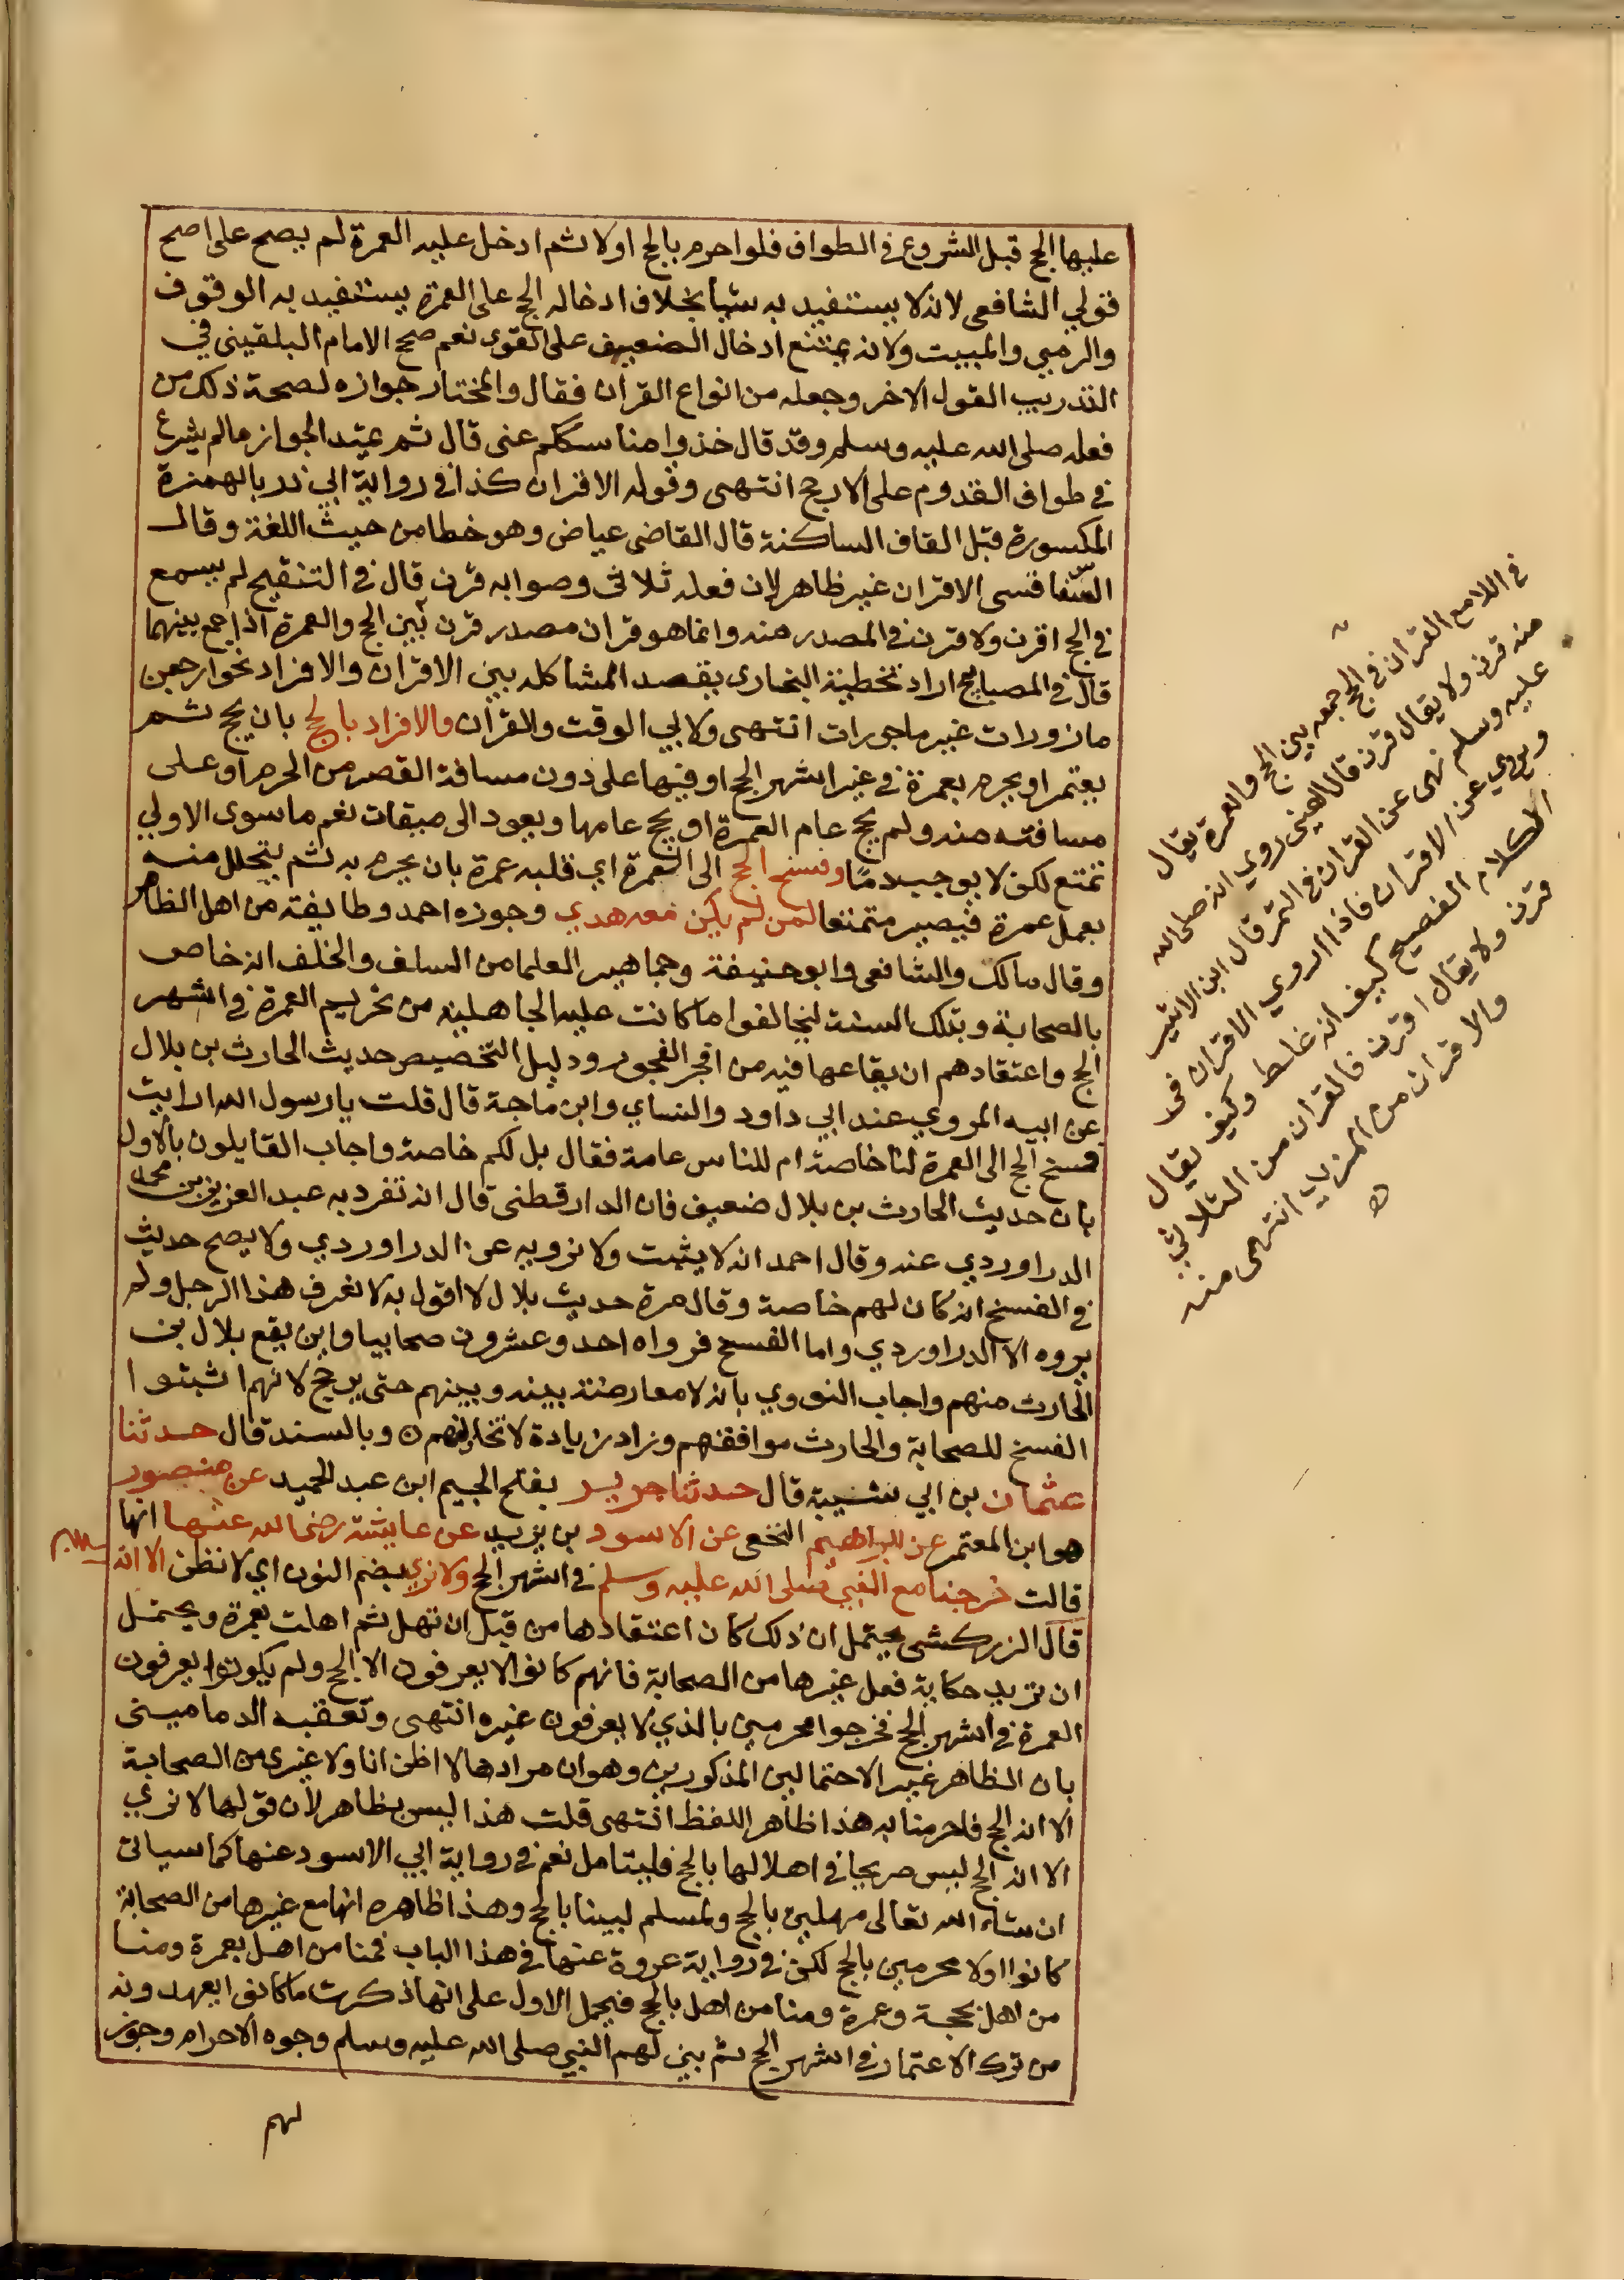 عليها الحج قبل الشروع في الطواف فلو احرم بالحج اولا ثم ادخل عليه العمرة لم يصح على اصح
قولي الشافعي لانه لا يستفيد به شيا بخلاف ادخاله الحج على العمرة يستفيد به الوقوف
والرمي والمبيت ولانه يمتنع ادخال الضعيف على القوى نعم صحح الامام البلقيني في
التدريب القول الاخر وجعله من انواع القران فقال والمختار جوازه لصحة ذلك من
فعله صلى الله عليه وسلم وقد قال خذوا مناسككم عنى قال ثم عيتد الجواز مالم يشرع
في طواف القدوم على الارجح انتهى وقوله الاقران كذا في رواية ابي ذر بالهمزة
المكسورة قبل القاف الساكنة قال القاضي عياض وهو خطا من حيث اللغة وقال
السفاقسى الاقران غير ظاهر لان فعله ثلاثى وصوابه قرن قال في التنقيح لم يسمع
في الحج اقرن ولا قرن في المصدر منه وانما هو قران مصدر قرن بين الحج والعمرة اذا جمع بينهما
قال في المصابيح اراد تخطية البخارى بقصد المشاكلة بين الاقران والافراد نحو ارجعن
مازورات غير ماجورات انتهى ولابي الوقت والقران والافراد بالحج بان يحج ثم
يعتمر او يحرم بعمرة في غير اشهر الحج او فيها على دون مسافة القصر من الحرم او على
مسافته منه ولم يحج عام العمرة او يحج عامها ويعود الى ميقات نعم ما سوى الاولي
تمتع لكن لا يوجب دمًا وفسخ الحج الى العمرة اي قلبه عمرة بان يحرم به ثم يتحلل منه
بعمل عمرة فيصير متمتعا لمن لم يكن معه هدي وجوزه احمد وطايفة من اهل الظاهر
وقال مالك والشافعي وابو حنيفة وجماهير العلما من السلف والخلف انه خاص
بالصحابة وبتلك السنة ليخالفوا ما كانت عليه الجاهلية من تحريم العمرة في اشهر
الحج واعتقادهم ان بقاعها فيه من افجر الفجور ودليل التخصيص حديث الحارث بن بلال
عن ابيه المروي عند ابي داود والنساي وابن ماجة قال قلت يا رسول الله ارايت
فسخ الحج الى العمرة لنا خاصة ام للناس عامة فقال بل لكم خاصة واجاب القايلون بالاول
بان حديث الحارث بن بلال ضعيف فان الدارقطنى قال انه تفرد به عبد العزيز بن محمد
الدراوردي عنه وقال احمد انه لا يثبت ولا نرويه عن الدراوردي ولا يصح حديث
في الفسخ انه كان لهم خاصة وقال مرة حديث بلال لا اقول به لا نعرف هذا الرجل ولم
يروه الا الدراوردي واما الفسح فرواه احد وعشرون صحابيا واين يقع بلال بن
الحارث منهم واجاب النووي بانه لا معارضة بينه وبينهم حتى يرجح لانهم اثبتوا
الفسخ للصحابة والحارث موافقهم وزاد زيادة لا تخالفهم ن وبالسند قال حدثنا
عثمان بن ابي شيبة قال حدثنا جرير بفتح الجيم ابن عبد الحميد عن منصور
هو ابن المعتمر عن ابراهيم النخعي عن الاسود بن يزيد عن عايشة رضى الله عنها انها
قالت خرجنا مع النبي صلى الله عليه وسلم في اشهر الحج ولا نري بضم النون اي لا نظن الا انه
قال الزركشى يحتمل ان ذلك كان اعتقادها من قبل ان تهل ثم اهلت بعمرة ويحتمل
ان تريد حكاية فعل غيرها من الصحابة فانهم كانوا لا يعرفون الا الحج ولم يكونوا يعرفون
العمرة في اشهر الحج فخرجوا محرمين بالذي لا يعرفون غيره انتهى وتعقبه الدمامينى
بان الظاهر غير الاحتمالين المذكورين وهو ان مرادها لا اظن انا ولا غيرى من الصحابة
الا انه الحج فاحرمنا به هذا ظاهر اللفظ انتهى قلت هذا ليس بظاهر لان قولها لا نري
الا انه الحج ليس صريحا في اهلالها بالحج فليتامل نعم في رواية ابي الاسود عنها كما سياتى
ان شاء الله تعالى مهلين بالحج ولمسلم لبينا بالحج وهذا ظاهره انها مع غيرها من الصحابة
كانوا اولا محرمين بالحج لكن في رواية عروة عنها في هذا الباب فمنا من اهل بعمرة ومنا
من اهل بحجة وعمرة ومنا من اهل بالحج فيحمل الاول على انها ذكرت ما كانوا يعهدونه
من ترك الاعتمار في اشهر الحج ثم بين لهم النبي صلى الله عليه وسلم وجوه الاحرام وجوز
لهم
في اللامع القران في الحج جمعه بين الحج والعمرة يقال
منه قرن ولا يقال قرن قال العينى روي انه صلى الله
عليه وسلم نهى عن القران في التمر قال ابن الاثير
ويروي عن الاقران فاذا روي الاقران في
الكلام الفصيح كيف انه غلط وكيف يقال
قرن ولا يقال اقرن فالقران من الثلاثي
والاقران من المزيد انتهى منه